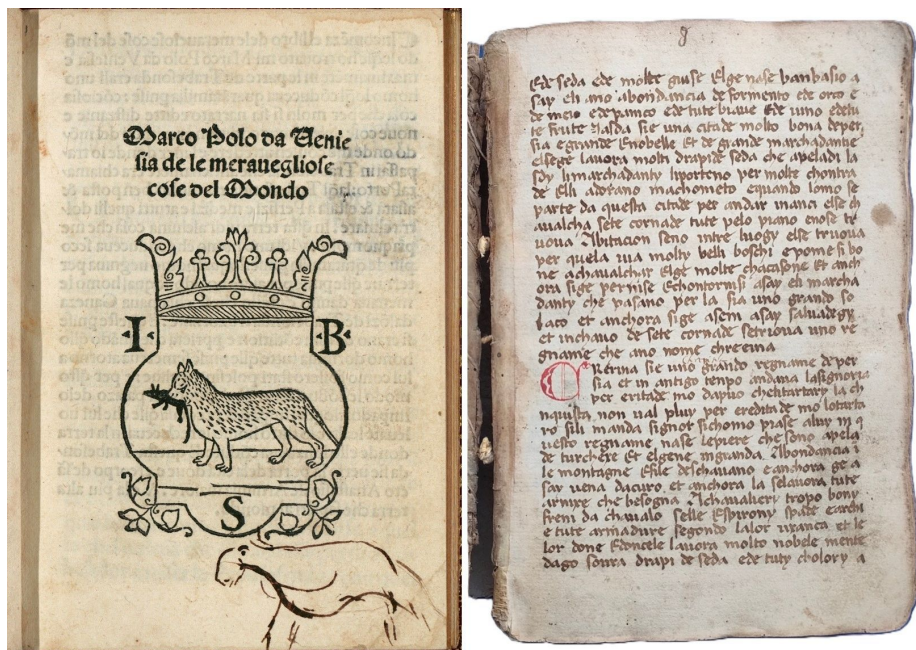 Marco Polo da Venie
sia de le merauegliose
cose del Mondo
I · B ·
S
8
Ede seda Ede molte guise Elge nase banbasio a
say Et ano abondancia de formento ede orco e
de meio ede panico Ede tute biaue Ede uino edetu
te frute Jasda sie una citade molto bona deper
sia egrande Enobelle Et de grande marchadantie
elsege lauora molti drapi de seda che apeladi la
sdy limarchadanty liporteno per molte chontra
de Elli adorano machometo equando lomo se
parte da questa citade per andar inano else ch
aualcha sete cornade tute pelo piano enose tr
uoua Abitacion seno intre luogy else truoua
per quela uia molto belli boschi epomesi bo
ne achaualchar Elge molte chacasone Et anch
ora sige pernise Echontornisi asay eli marcha
danty che pasano per la sia uno grando so
laco et anchora sige aseni asay saluadegy
et inchauo de sete cornade setroua uno re
gname che ano nome chrerina
Crerina sie uno grando regname de per
sia et in antigo tenpo andaua lasignoria
per eritade mo dapuo che litartary la ch
nquista non ual pluy per ereditade mo lotarta
ro sili manda signor sichomo piase aluy in q
uesto regname nase lepiere che sono apela
de turchexe Et elgene ingranda Abondancia i
le montagne
sar uena dacuro et anchora se lauora tute
armure che belogna Achaualieri tropo bony
freni da chaualo selle Espirony spade earchi
e tute armadure segondo lalor uxanca et le
lor done Edoncele lauora molto nobele mente
dago soura drapi de seda ede tuty cholory a